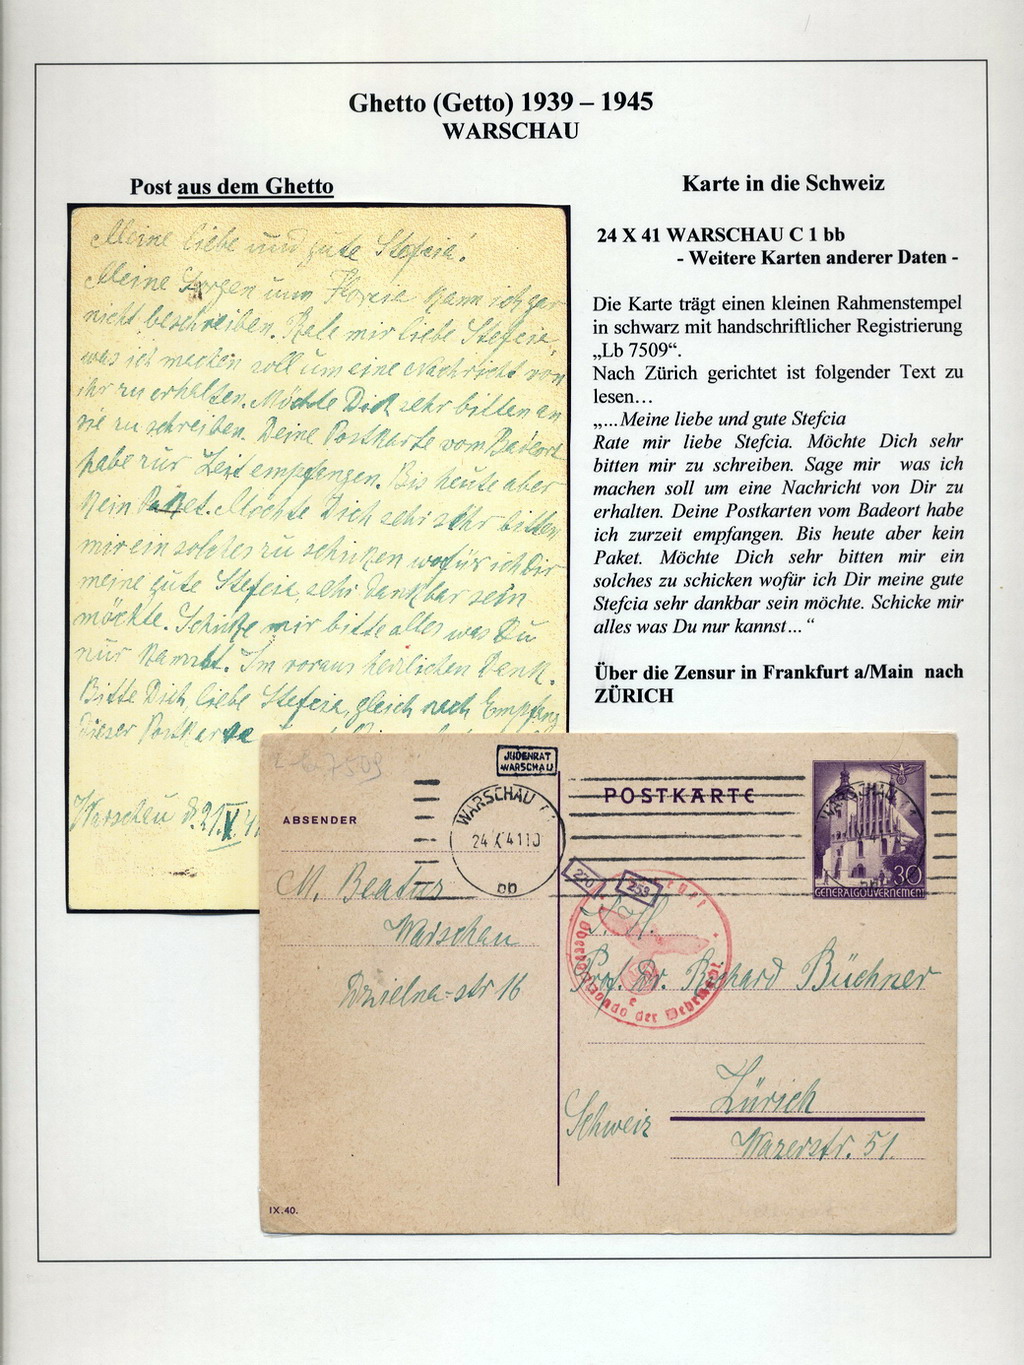 Ghetto (Getto) 1939 – 1945
WARSCHAU
Post aus dem Ghetto
Meine liebe und gute Stefcia!
Meine Sorgen um Florcia kann ich gar
nicht beschreiben. Rate mir liebe Stefcia,
was ich machen soll um eine Nachricht von
ihr zu erhalten. Möchte Dich sehr bitten an
sie zu schreiben. Deine Postkarte vom Badeort
habe zur Zeit empfangen. Bis heute aber
kein Paket. Möchte Dich sehr sehr bitten
mir ein solches zu schicken wofür ich Dir
meine gute Stefcia, sehr dankbar sein
möchte. Schicke mir bitte alles was Du
nur kannst. Im voraus herzlichen Dank.
Bitte Dich, liebe Stefcia, gleich nach Empfang
dieser Postkarte
Warschau d. 21.X.41
Karte in die Schweiz
24 X 41 WARSCHAU C 1 bb
- Weitere Karten anderer Daten -
Die Karte trägt einen kleinen Rahmenstempel
in schwarz mit handschriftlicher Registrierung
„Lb 7509“.
Nach Zürich gerichtet ist folgender Text zu
lesen…
„…Meine liebe und gute Stefcia
Rate mir liebe Stefcia. Möchte Dich sehr
bitten mir zu schreiben. Sage mir was ich
machen soll um eine Nachricht von Dir zu
erhalten. Deine Postkarten vom Badeort habe
ich zurzeit empfangen. Bis heute aber kein
Paket. Möchte Dich sehr bitten mir ein
solches zu schicken wofür ich Dir meine gute
Stefcia sehr dankbar sein möchte. Schicke mir
alles was Du nur kannst…“
Über die Zensur in Frankfurt a/Main nach
ZÜRICH
Lb 7509
JUDENRAT
WARSCHAU
POSTKARTE
ABSENDER
WARSCHAU C
24 X 41 10
bb
WARSCHAU
30
GENERALGOUVERNEMENT
270
253
Oberkommando der Wehrmacht
e
M. Beatus
Warschau
Dzielna-str 16
S. H.
Prof. Dr. Richard Büchner
Zürich
Schweiz
Wazerstr. 51.
IX.40.